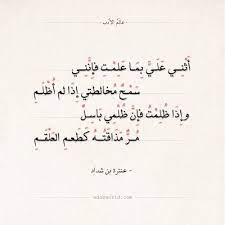 عالم الأدب
أَثْنِي عَلَيَّ بِمَا عَلِمْتِ فَإِنَّنِي
سَمْحٌ مُخَالَطَتِي إِذَا لَمْ أُظْلَمِ
وَإِذَا ظُلِمْتُ فَإِنَّ ظُلْمِي بَاسِلٌ
مُرٌّ مَذَاقَتُهُ كَطَعمِ العَلْقَمِ
- عنترة بن شداد -